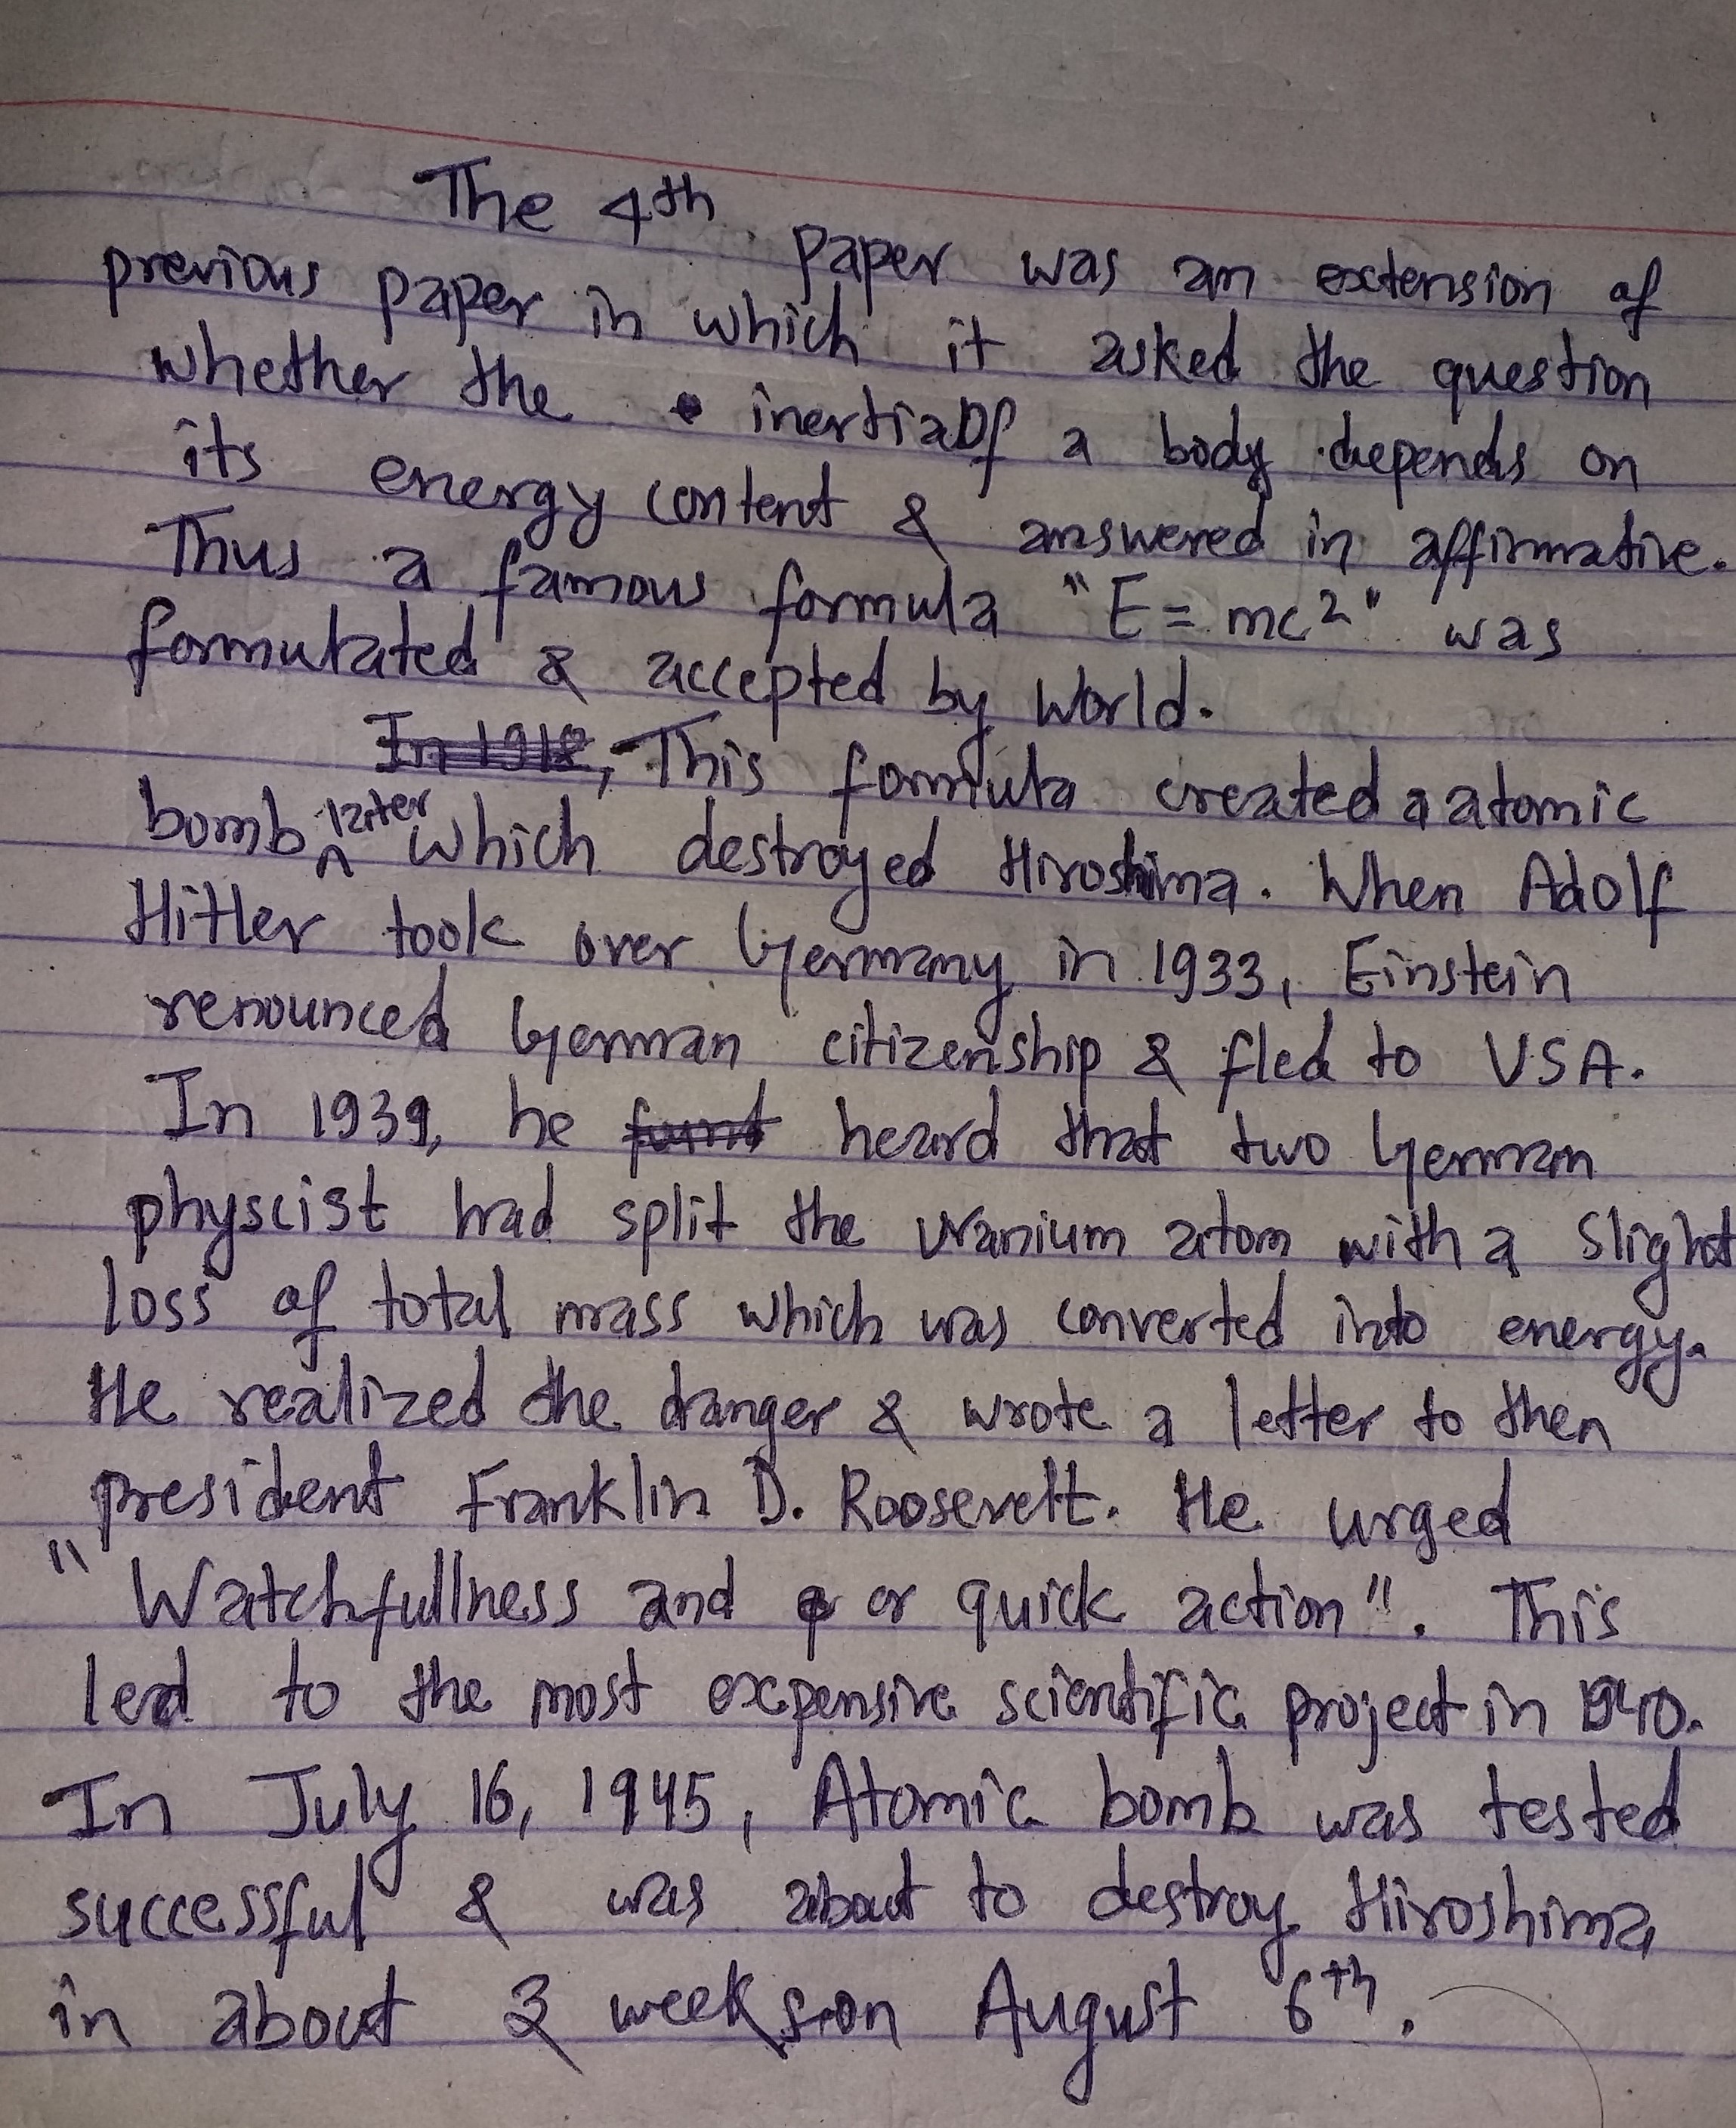 The 4th paper was an extension of
previous paper in which it asked the question
whether the inertia of a body depends on
its energy content & answered in affirmative.
Thus a famous formula "E = mc²" was
formulated & accepted by World.
In 1912, This formula created a atomic
bomb later which destroyed Hiroshima. When Adolf
Hitler took over Germany in 1933, Einstein
renounced German citizenship & fled to USA.
In 1939, he found heard that two German
physcist had split the Uranium atom with a slight
loss of total mass which was converted into energy.
He realized the danger & wrote a letter to then
president Franklin D. Roosevelt. He urged
"Watchfullness and or quick action". This
led to the most expensive scientific project in 1940.
In July 16, 1945, Atomic bomb was tested
successful & was about to destroy Hiroshima
in about 3 weeks on August 6th.